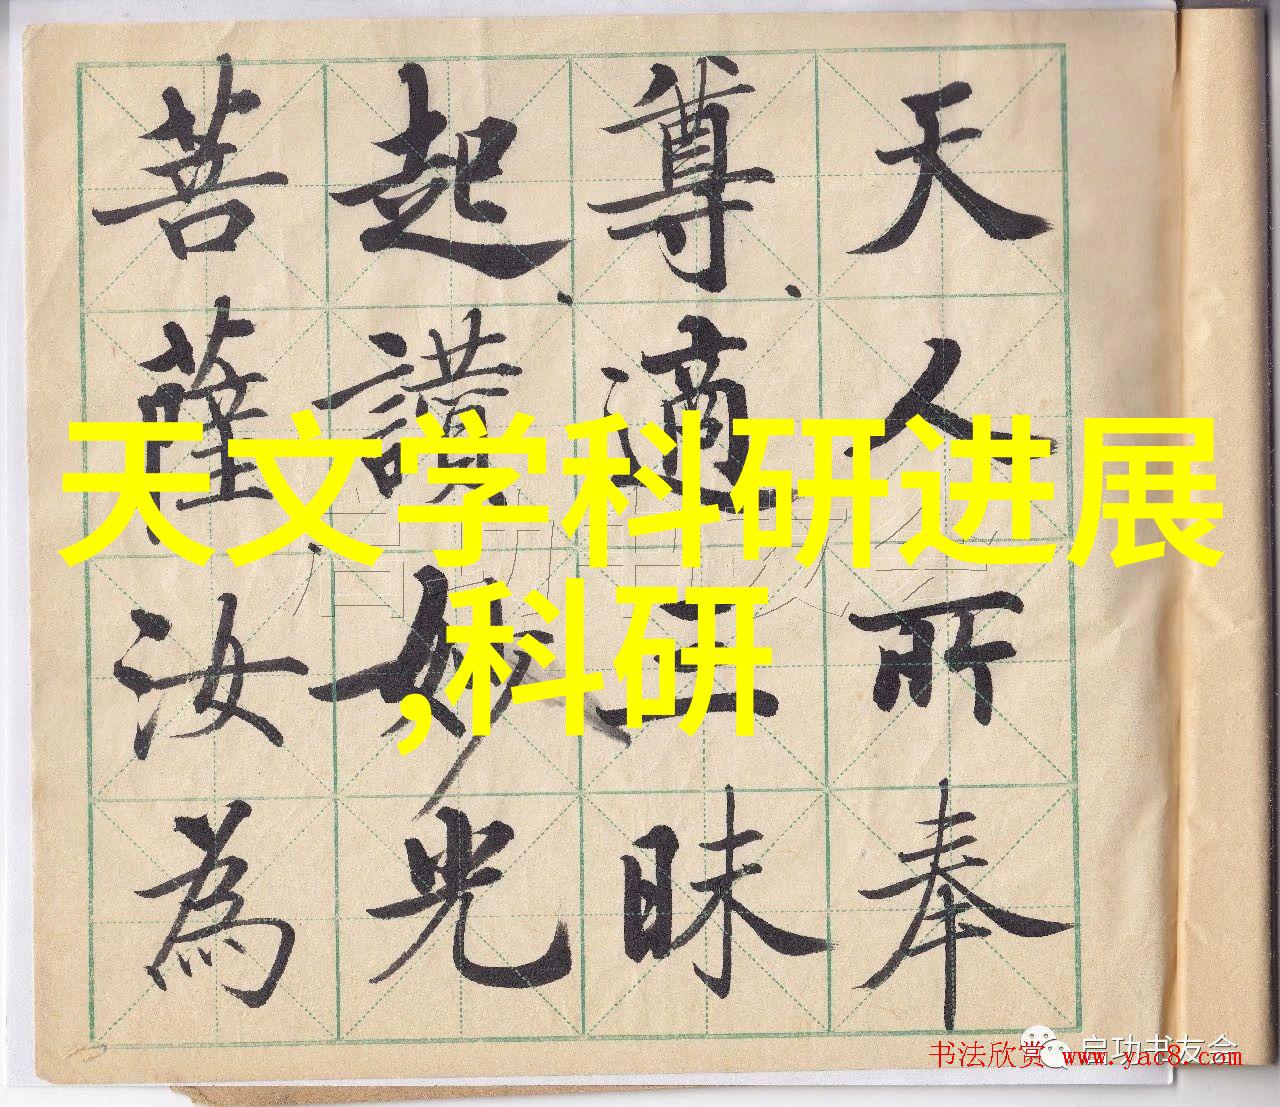 天人所奉
尊、適三昧
起、讚妙光
菩薩汝為
天文学科研进展
,科研
启功书友会
启功书友会
书法欣赏 www.yac8.com